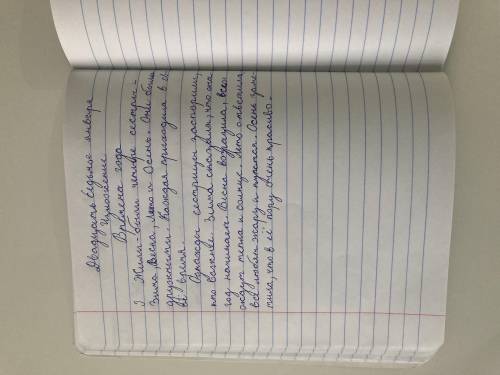 Двадцать седьмое января
Изложение
Времена года
Жили-были четыре сестры-
Зима, Весна, Лето и Осень. Они были
дружными. Каждая приходила в с
её время.
Однажды сестрицы заспорили,
кто важнее. Зима сказала, что она
год начинает. Весна возразила, все
ждут тепла и солнце. Лето ответила
все любят жару и купатся. Осень заме-
тила, что в её пору очень красиво.